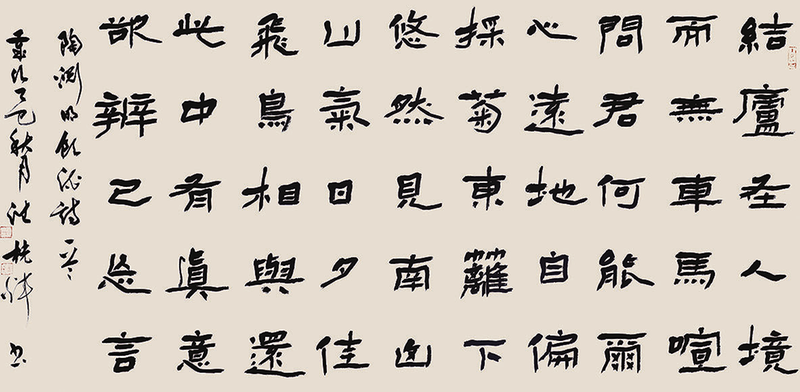 結廬在人境
而無車馬喧
問君何能爾
心遠地自偏
採菊東籬下
悠然見南山
山氣日夕佳
飛鳥相與還
此中有眞意
欲辨已忘言
陶淵明飲酒詩一首
歲次乙巳秋月 书